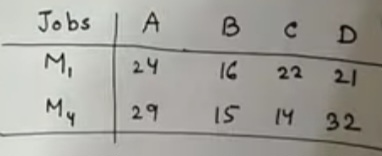 Jobs A B C D
M₁ 24 16 22 21
M₄ 29 15 14 32